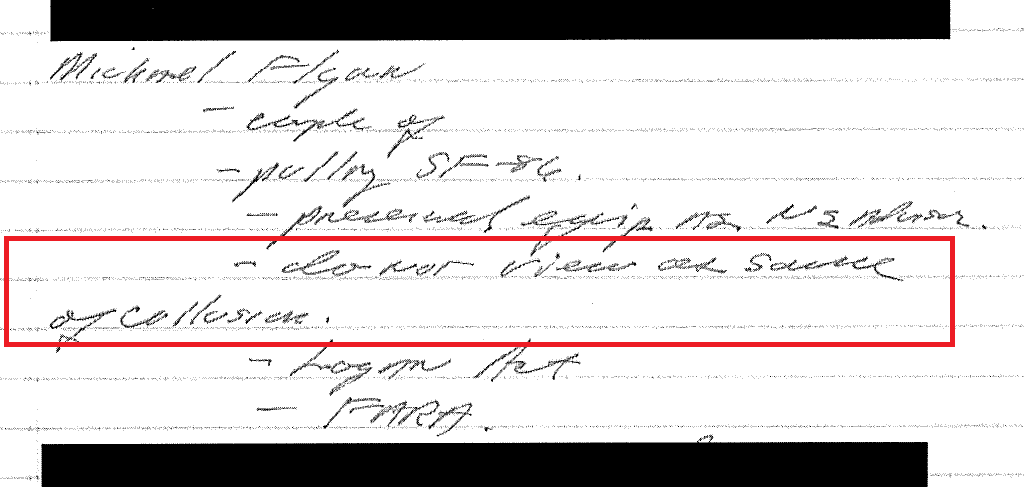 Michael Flynn
- couple of
- pulling SF-86.
- preserved equip NS Advisor.
- do not view as
of collusion.
- Logan Act
- FARA.